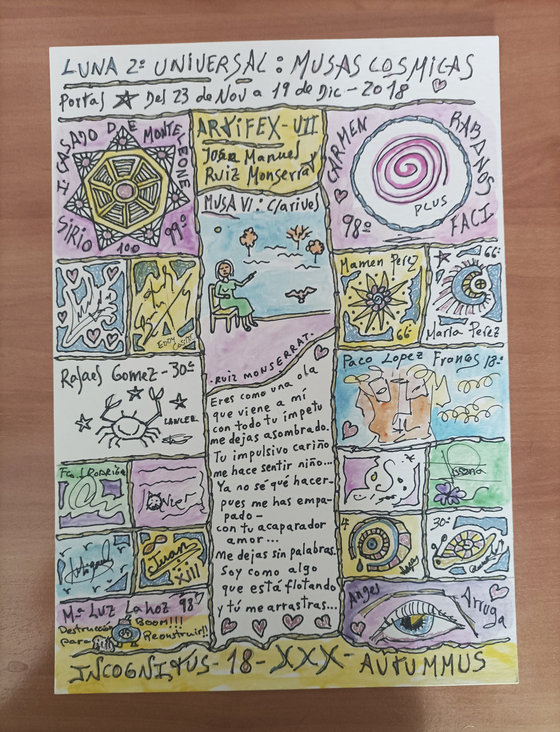 LUNA 2ª UNIVERSAL: MUSAS COSMICAS
Portas ☆ Del 23 de Nov a 19 de Dic - 2018
I CASADO DE MONTELEONE
SIRIO 100 99ª
ARTIFEX-VII
Joan Manuel
Ruiz Monserrat
MUSA VI: Clarives
RUIZ MONSERRAT.
CARMEN RABANOS
PLUS
98ª FACI
EDDY
Mamen Perez
66ª
66ª
Marla Perez
Rafael Gomez - 30ª
CANCER
Paco Lopez Frances 18ª
Eres como una ola
que viene a mí
con todo tu impetu
me dejas asombrado.
Tu impulsivo cariño
me hace sentir niño...
Ya no sé qué hacer-
pues me has empa-
pado-
con tu acaparador
amor...
Me dejas sin palabras.
Soy como algo
que está flotando
y tú me arrastras...
Juan
XIII
4
30ª
Mª Luz Lahoz 98ª
BOOM!!!
Destrucción
para Reonstruir!!
Angel Arruga
INCOGNITUS-18-XXX-AUTUMMUS